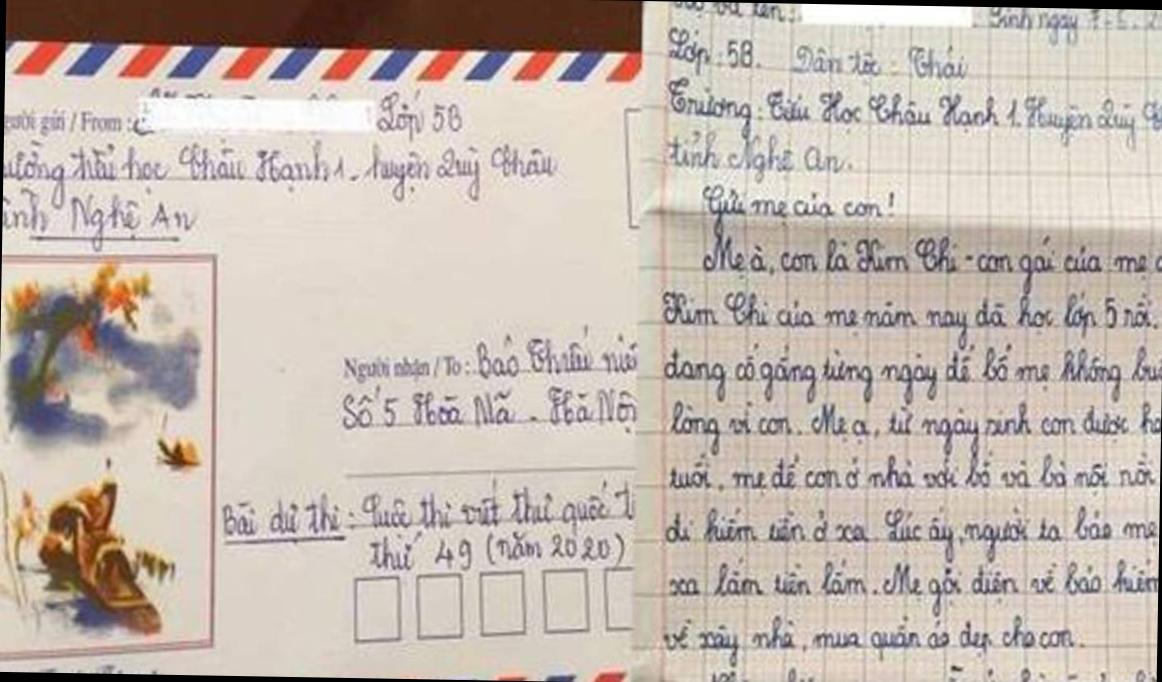 gười gửi / From : Lớp 5B
ường tiểu học Châu Hạnh 1. huyện Quỳ Châu
ỉnh Nghệ An
Người nhận / To : Báo Thiếu niê
Số 5 Hoà Mã - Hà Nội
Bài dự thi : Cuộc thi viết thư quốc t
thứ 49 (năm 2020)
và tên : Sinh ngày
Lớp : 5B. Dân tộc : Thái
Trường : Tiểu Học Châu Hạnh 1. Huyện Quỳ C
tỉnh Nghệ An.
Gửi mẹ của con !
Mẹ à, con là Kim Chi - con gái của mẹ
Kim Chi của mẹ năm nay đã học lớp 5 rồi.
đang cố gắng từng ngày để bố mẹ không bu
lòng vì con. Mẹ ạ, từ ngày sinh con được ha
tuổi, mẹ để con ở nhà với bố và bà nội rồi
đi kiếm tiền ở xa. Lúc ấy, người ta bảo mẹ
xa lắm tiền lắm. Mẹ gọi điện về bảo kiếm
về xây nhà, mua quần áo đẹp cho con.